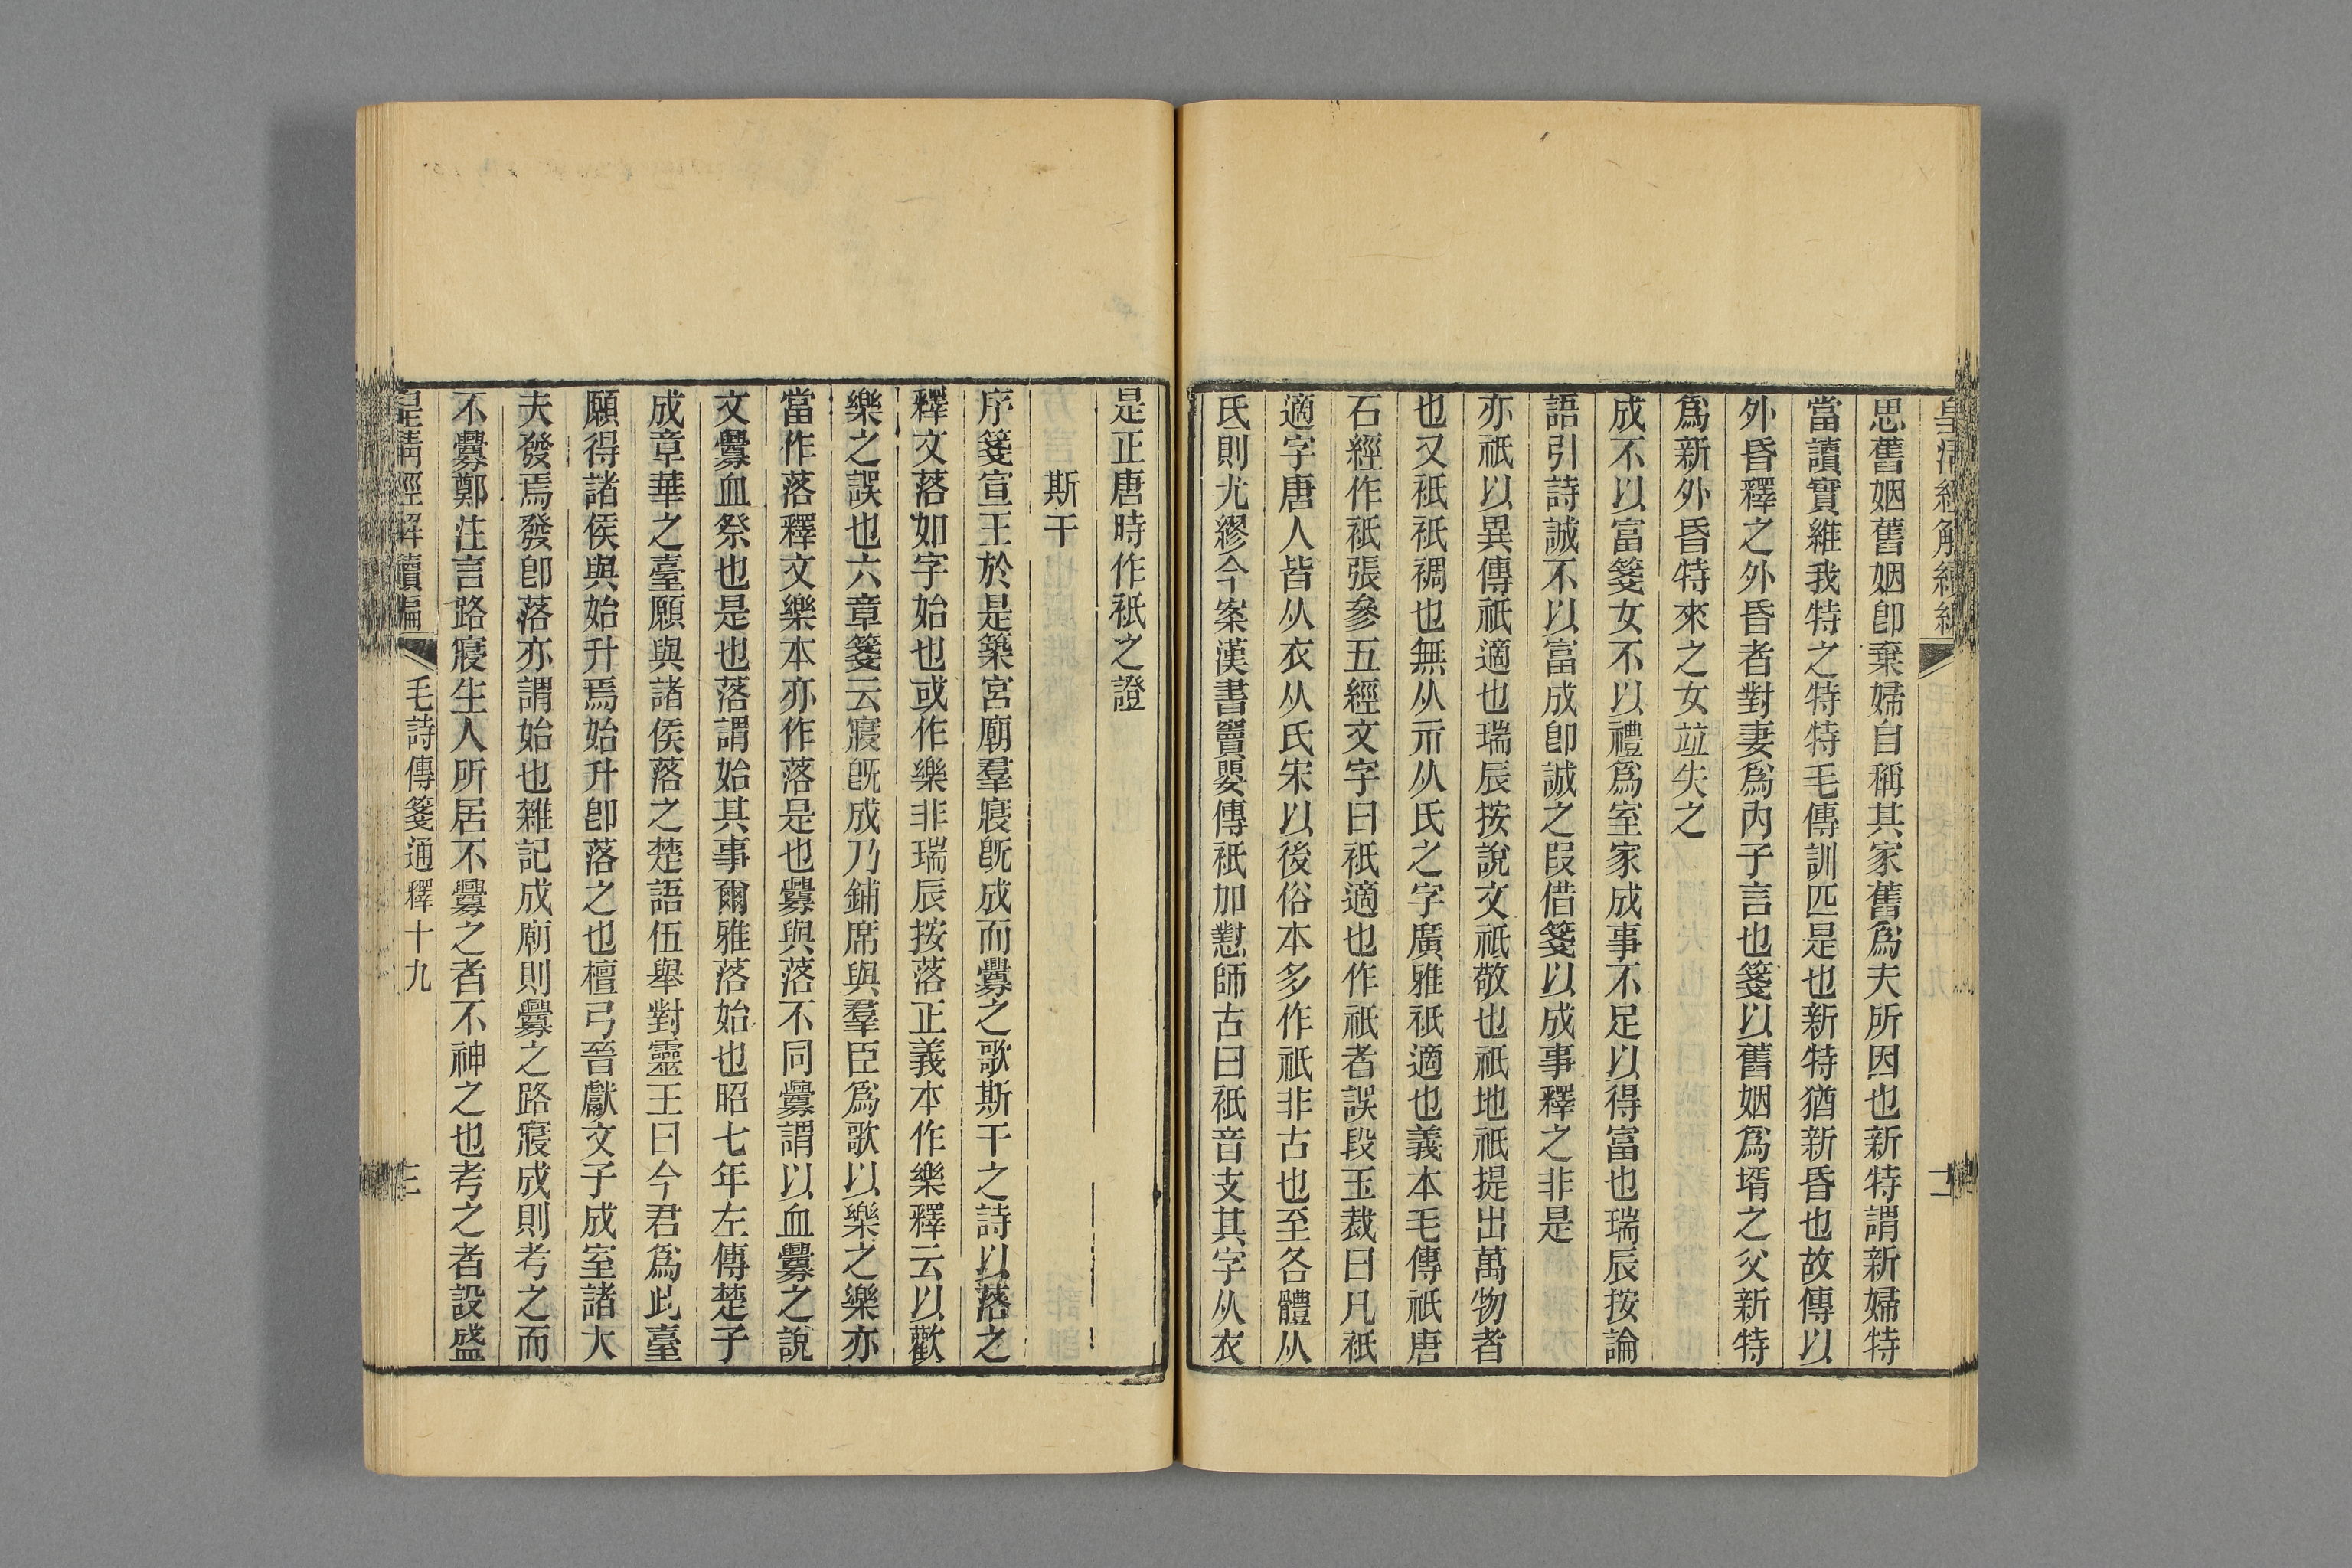 思舊姻舊姻卽棄婦自稱其家舊爲夫所因也新特謂新婦特
當讀實維我特之特特毛傳訓匹是也新特猶新昏也故傳以
外昏釋之外昏者對妻爲內子言也箋以舊姻爲壻之父新特
爲新外昏特來之女竝失之
成不以富箋女不以禮爲室家成事不足以得富也瑞辰按論
語引詩誠不以富成卽誠之叚借箋以成事釋之非是
亦祇以異傳祇適也瑞辰按說文祇敬也祇地祇提出萬物者
也又衹衹裯也無从示从氏之字廣雅衹適也義本毛傳衹唐
石經作衹張參五經文字曰衹適也作祇者誤段玉裁曰凡衹
適字唐人皆从衣从氏宋以後俗本多作祇非古也至各體从
氏則尤繆今案漢書竇嬰傳衹加懟師古曰衹音支其字从衣
是正唐時作衹之證
斯干
序箋宣王於是築宮廟羣寢旣成而釁之歌斯干之詩以落之
釋文落如字始也或作樂非瑞辰按落正義本作樂釋云以歡
樂之誤也六章箋云寢旣成乃鋪席與羣臣爲歌以樂之樂亦
當作落釋文樂本亦作落是也釁與落不同釁謂以血釁之說
文釁血祭也是也落謂始其事爾雅落始也昭七年左傳楚子
成章華之臺願與諸侯落之楚語伍舉對靈王曰今君爲此臺
願得諸侯與始升焉始升卽落之也檀弓晉獻文子成室諸大
夫發焉發卽落亦謂始也雜記成廟則釁之路寢成則考之而
不釁鄭注言路寢生人所居不釁之者不神之也考之者設盛
皇清經解續編
毛詩傳箋通釋十九
三